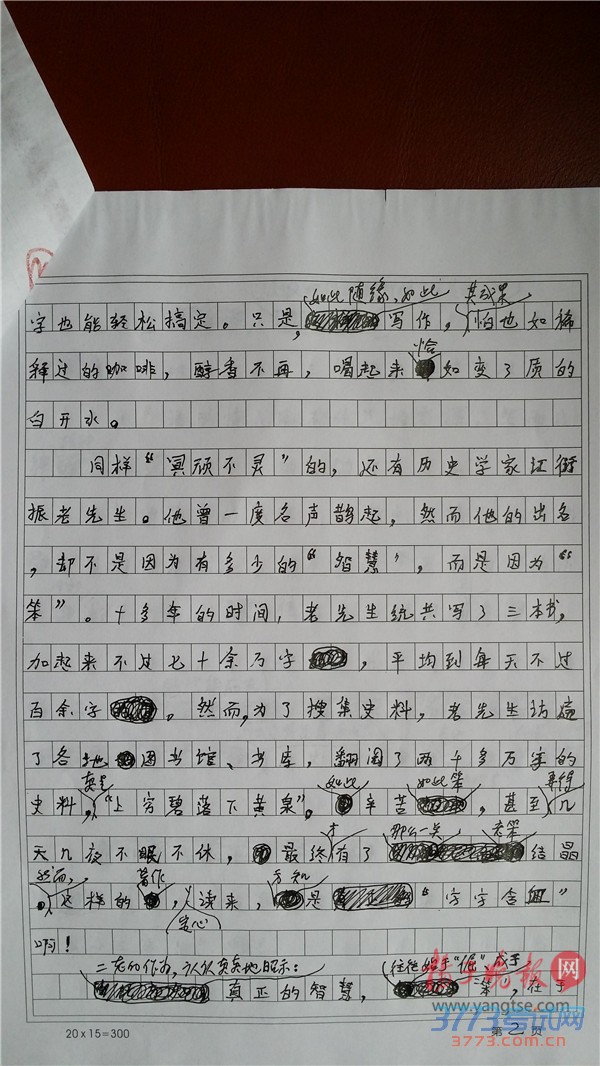 如此随缘、如此 其成果
字也能轻松搞定。只是, 写作,怕也如稀
恰
释过的咖啡,醇香不再,喝起来 如变了质的
白开水。
同样“冥顽不灵”的,还有历史学家江衔
振老先生。他曾一度名声鹊起,然而他的出名
,却不是因为有多少的“智慧”,而是因为“
笨”。十多年的时间,老先生统共写了三本书,
加起来不过七十余万字 ,平均到每天不过
百余字 。然而,为了搜集史料,老先生访遍
了各地 图书馆、书库,翻阅了两千多万字的
真是 如此 如此笨
史料,“上穷碧落下黄泉”。 辛苦 ,甚至 几
才 那么一点 老笨
天几夜不眠不休, 最终有了 结晶
然而, 著作 方知
。这样的 ,读来, 是 “字字含血”
定心
啊!
二老的作为,认认真真地昭示: 往往始于“倔”成于
真正的智慧, 笨,在于
20×15=300
第2页
扬子晚报网
www.yangtse.com
3773考试网
3773.com.cn